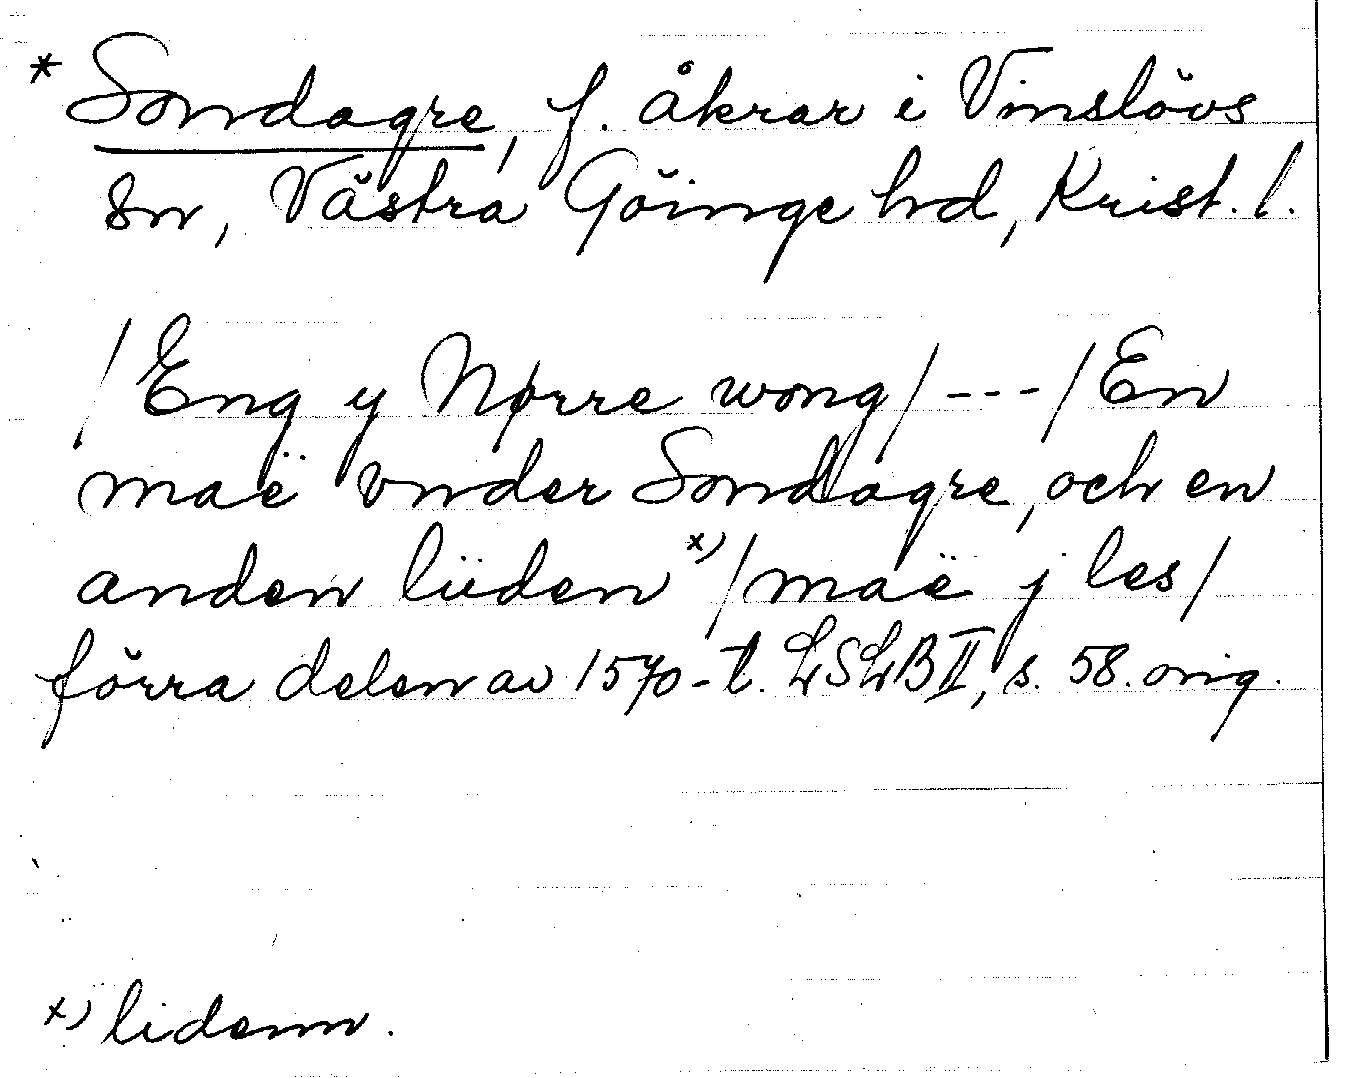 * Sondagre, f. åkrar i Vinslövs
sn, Västra Göinge hd, Krist. l.
/Eng y Nørre wong/ --- /En
maë vnder Sondagre, och en
anden lüden x) /maë j les/
förra delen av 1570-t. LSLB II, s. 58. orig.
x) lidenn.